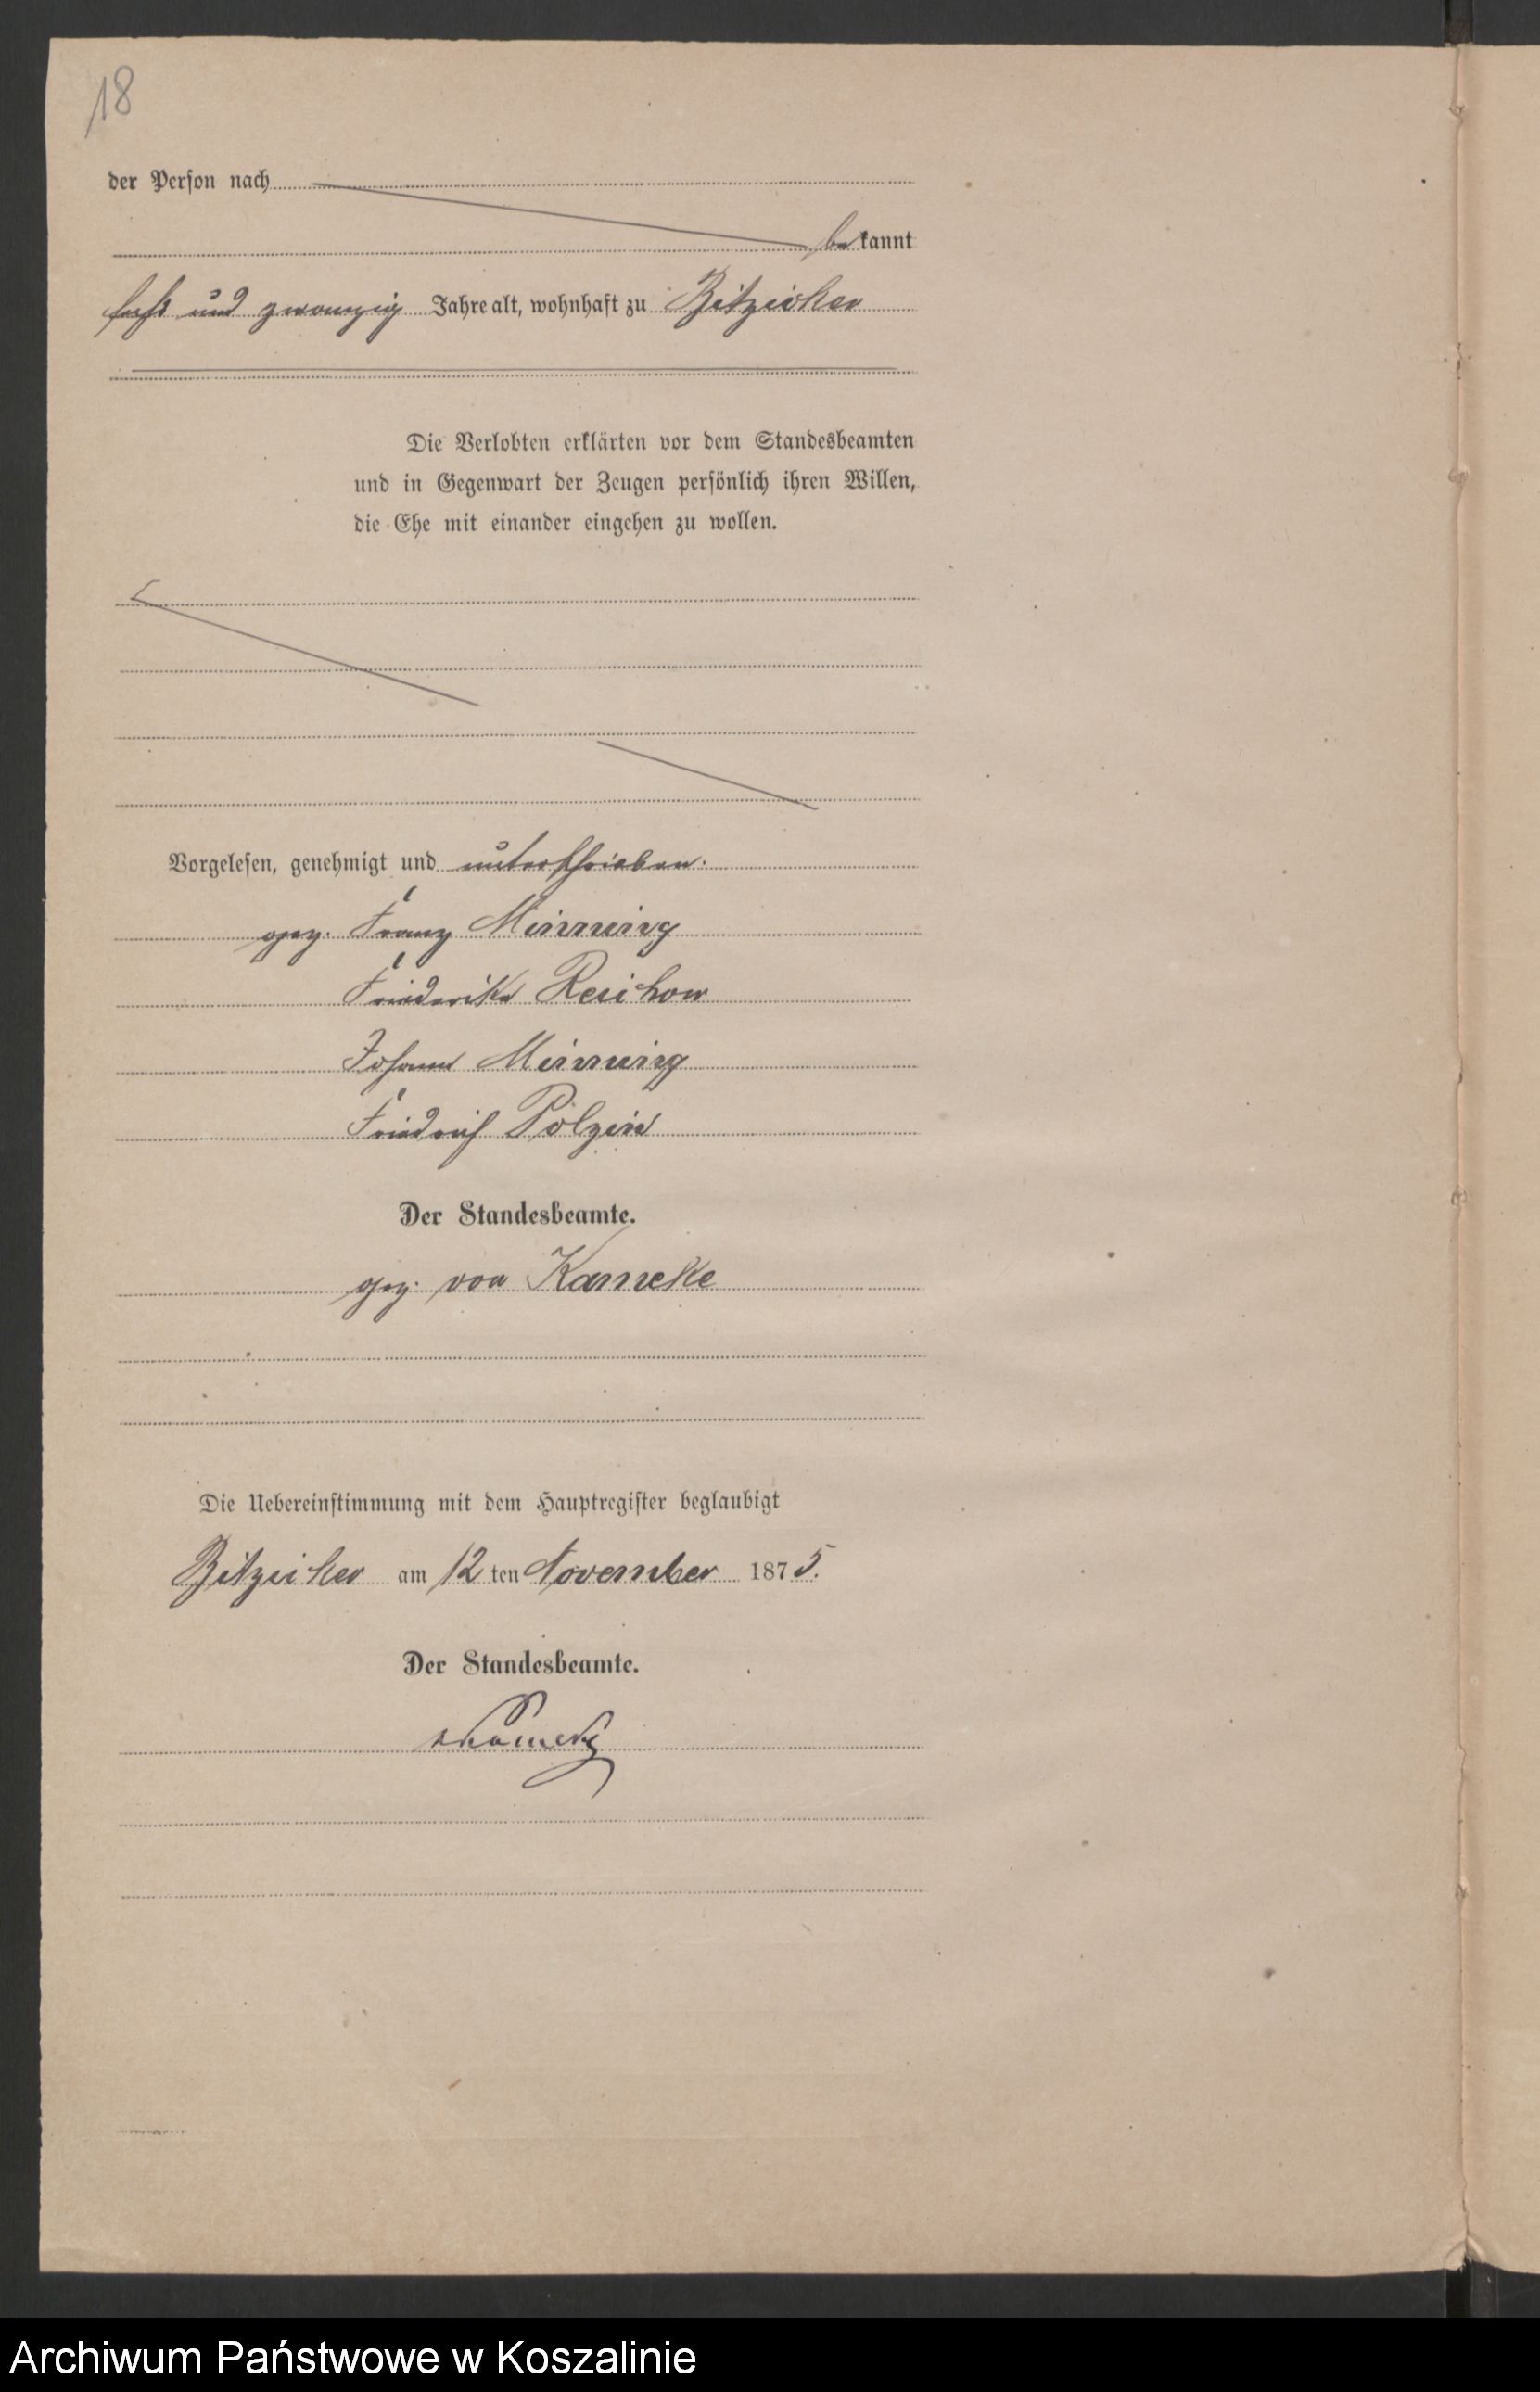 18
der Person nach
bekannt
sechs und zwanzig Jahre alt, wohnhaft zu Bitzicker
Die Verlobten erklärten vor dem Standesbeamten
und in Gegenwart der Zeugen persönlich ihren Willen,
die Ehe mit einander eingehen zu wollen.
Vorgelesen, genehmigt und unterschrieben.
gez. Franz Minning
Friederike Reichow
Johann Minning
Friedrich Polzin
Der Standesbeamte.
gez. von Kameke
Die Uebereinstimmung mit dem Hauptregister beglaubigt
Bitzicker am 12 ten November 1875.
Der Standesbeamte.
vKameke
Archiwum Państwowe w Koszalinie